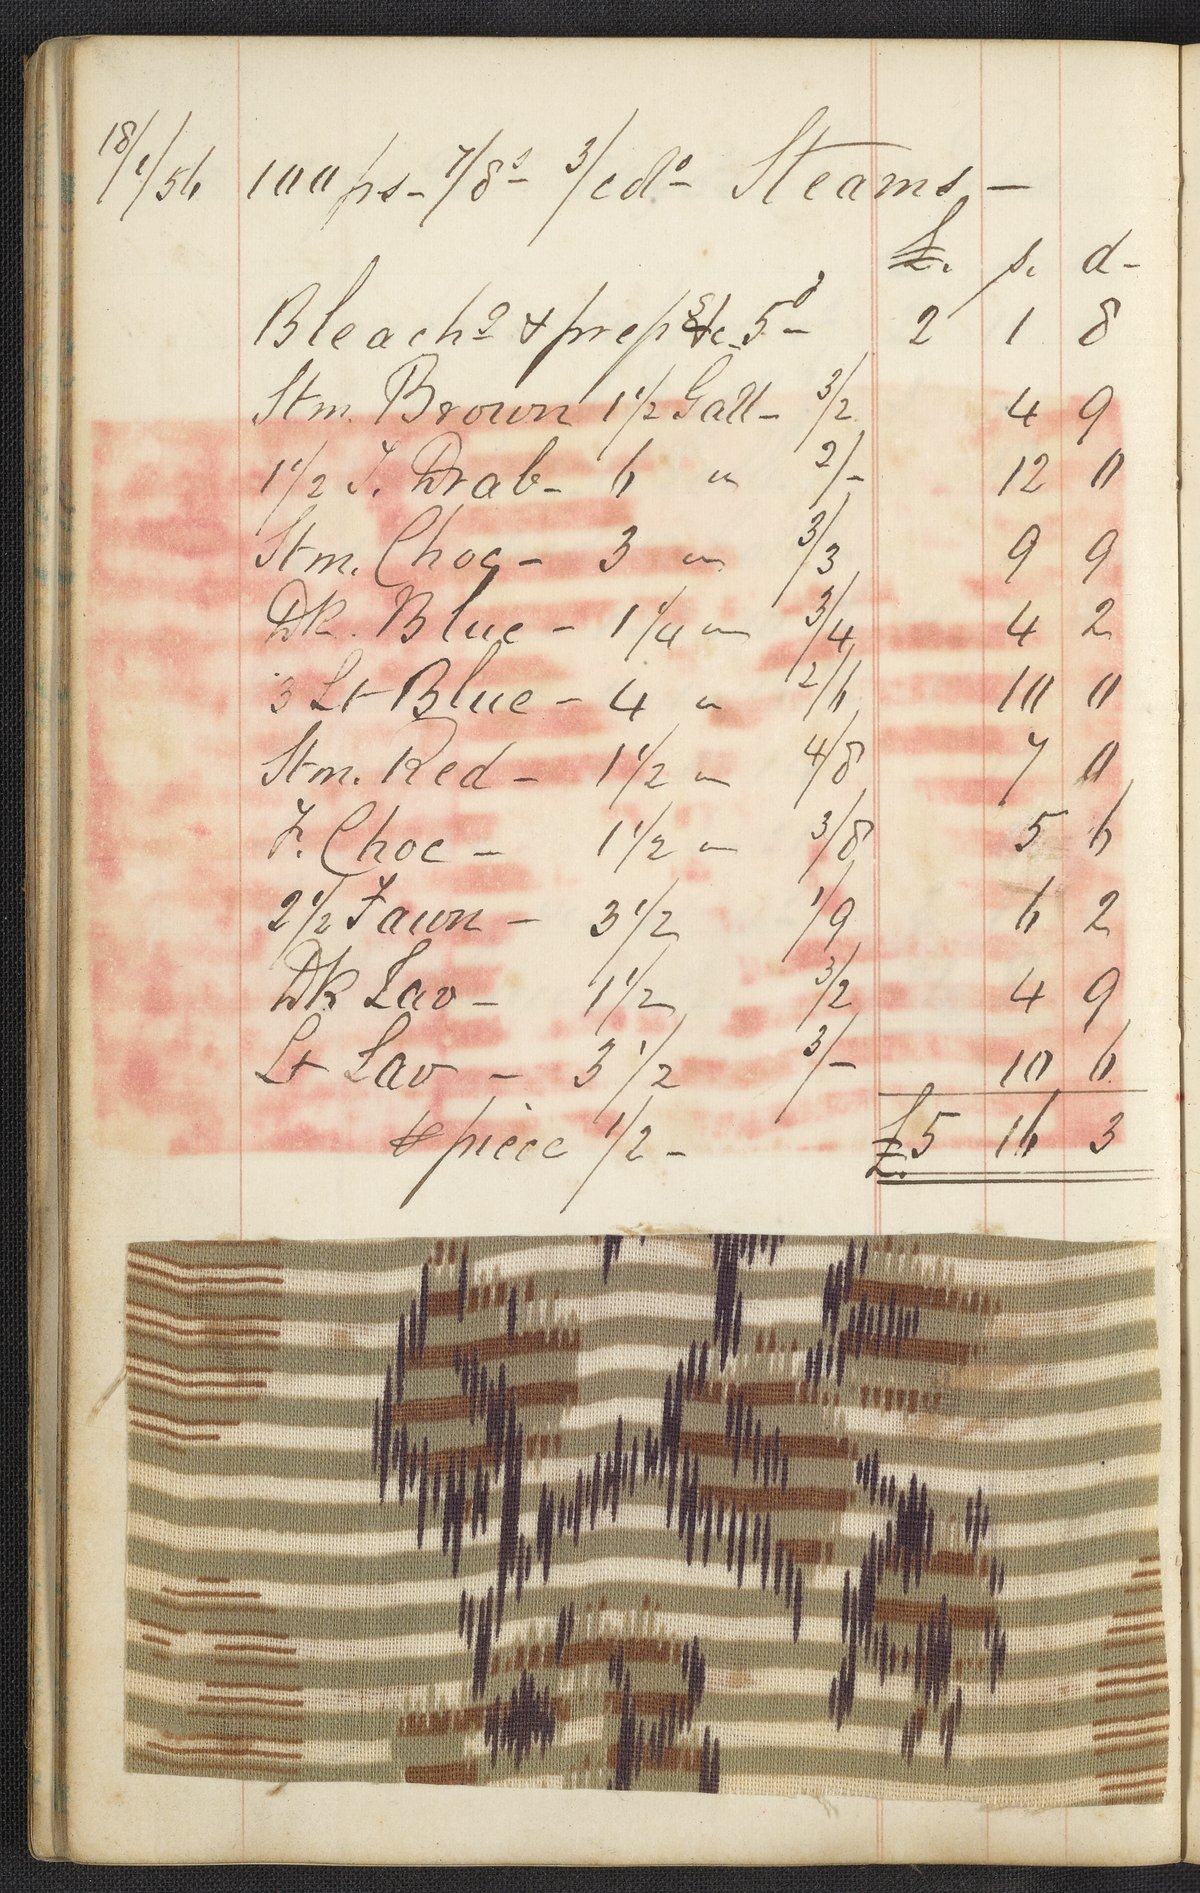 18/1/56 100 ps - 7/8s - 3/cd° - Steams -
£. s. d -
Bleachg & prepg &c 5d - 2 1 8
Stm. Brown 1 1/2 Gall - 3/2 4 9
1 1/2 F. Drab - 6 " 2/- 12 0
Stm. Choc - 3 " 3/3 9 9
Dk. Blue - 1 1/4 " 3/4 4 2
3 Lt Blue - 4 " 2/6 10 0
Stm. Red - 1 1/2 " 4/8 7 0
F. Choc - 1 1/2 " 3/8 5 6
2 1/2 Fawn - 3 1/2 1/9 6 2
Dk Lav - 1 1/2 3/2 4 9
Lt Lav - 3 1/2 3/- 10 6
piece 1/2 - £5 16 3